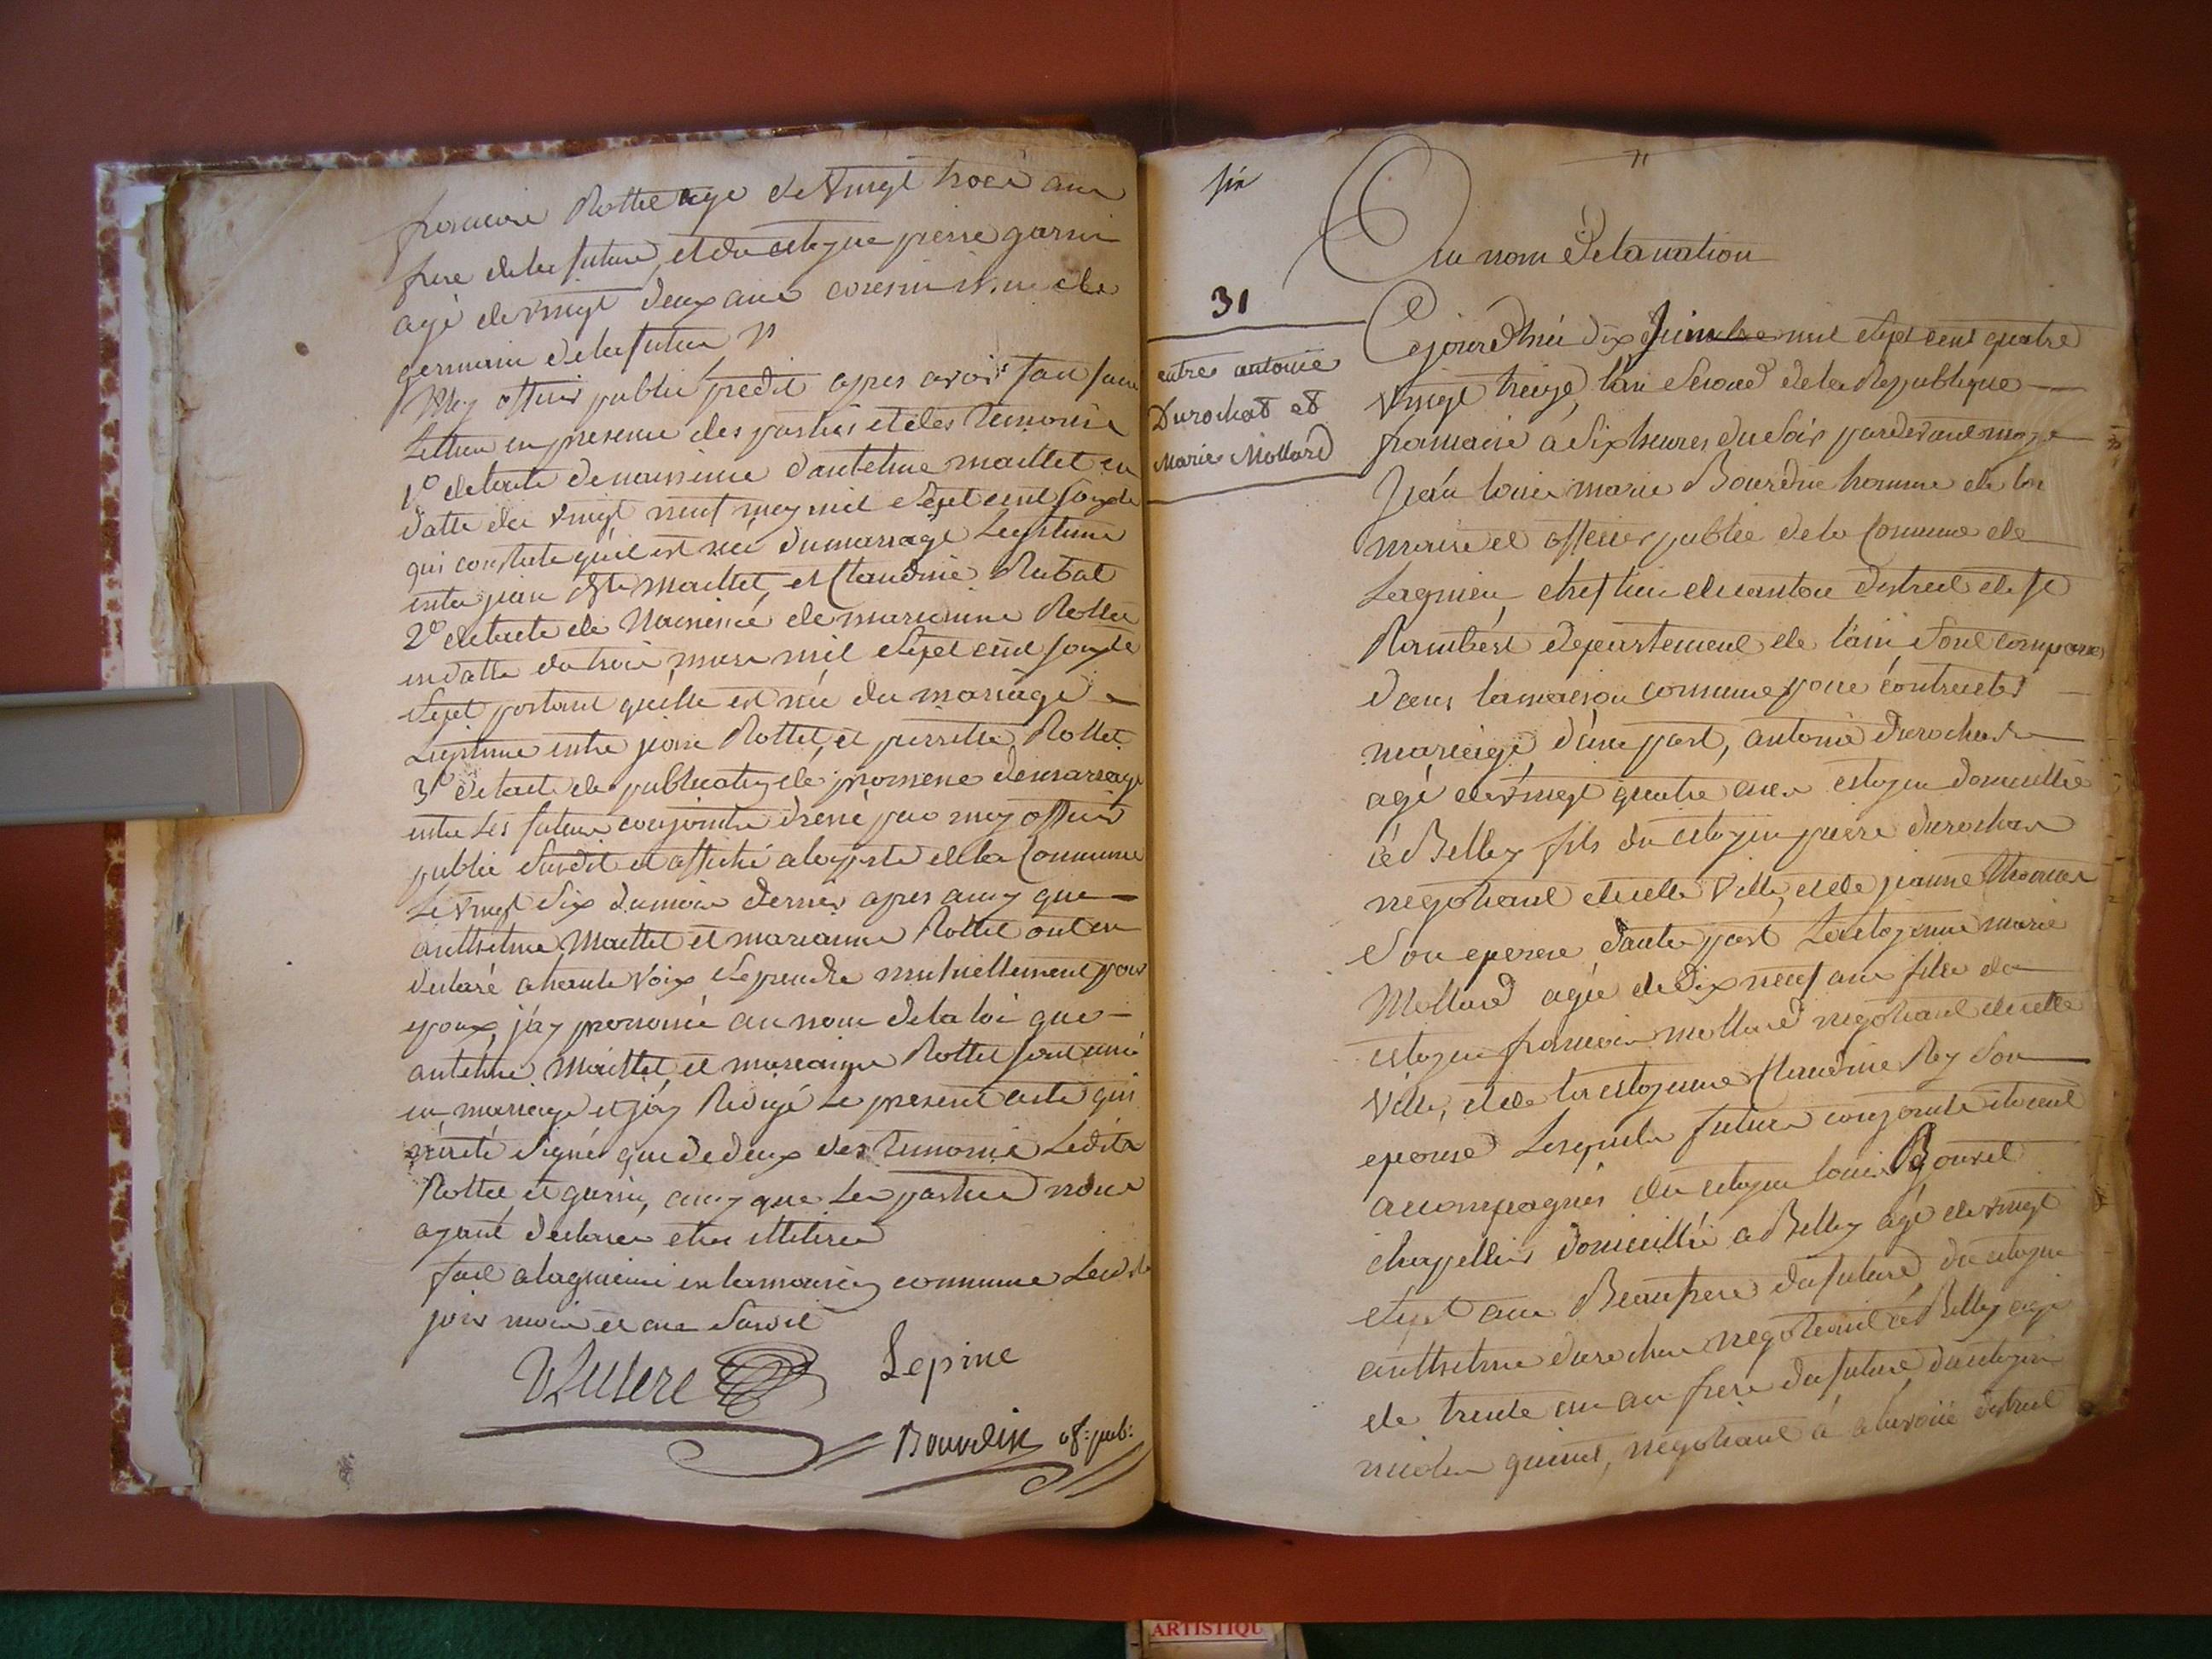 francois Rottet agé de vingt trois ans
frere de la future, et du citoyen pierre garnin
agé de vingt deux ans cousin
germain de la future
Moy officier public predit apres avoir fait faire
Lecture en presence des parties et des temoins
1° de lacte de naissance dantelme maillet en
datte du vingt neuf may mil sept cent soixante
qui constate quil est né du mariage Legitime
entre jean Bte Maillet, et Claudine Rubat
2° de lacte de Naissance de marianne Rottet
en datte du trois mars mil sept cent soixante
sept portant quelle est née du mariage
Legitime entre jean Rottet, et pierrette Rottet
3° de lacte de publication de promesse de mariage
entre Les futurs conjoints dressé par moy officier
public susdit et affiché a la porte de la Commune
Le vingt six du mois dernier apres aussy que
anthelme Maillet et marianne Rottet ont eu
declaré a haute voix se prendre mutuellement pour
epoux, j'ay prononcé au nom de la loi que
antelme Maillet et marianne Rottet sont unis
en mariage et j'ay Redigé Le present acte qui
n'a été signé que de deux des temoins Ledits
Rottet et garnin, aussy que Les parties nous
ayant declaré etre illitérés
fait a lagnieu en la maison commune Lesdits
jour mois et an susdit
Lepine
Bourdin of: pub:
six
31
entre antoine
Durochat et
Marie Mollard
Au nom de la nation
Cejourdhui dix Juin mil sept cent quatre
vingt treize, lan second de la Republique
francaise a six heures du soir pardevant moy
Jean louis marie Bourdin homme de loi
maire et officier public de la Commune de
Lagnieu chef lieu de canton district de st
Rambert departement de l'ain sont comparus
dans la maison commune pour contracter
mariage, d'une part, antoine durochat
agé de vingt quatre ans citoyen domicillié
a Belley fils du citoyen pierre durochat
negotiant de cette ville, et de jeanne thomas
son epouse dautre part La citoyenne marie
Mollard agée de dix neuf ans fille du
citoyen francois mollard negotiant de cette
ville, et de la citoyenne Claudine Rey son
epouse Lesquels futurs conjoints etoient
accompagnés du citoyen louis Bouvet
chapellier domicillié a Belley agé de vingt
sept ans Beaufrere du futur, du citoyen
anthelme durochat negotiant a Belley agé
de trente un an frere du futur, du citoyen
nicolas guinet, negotiant a district